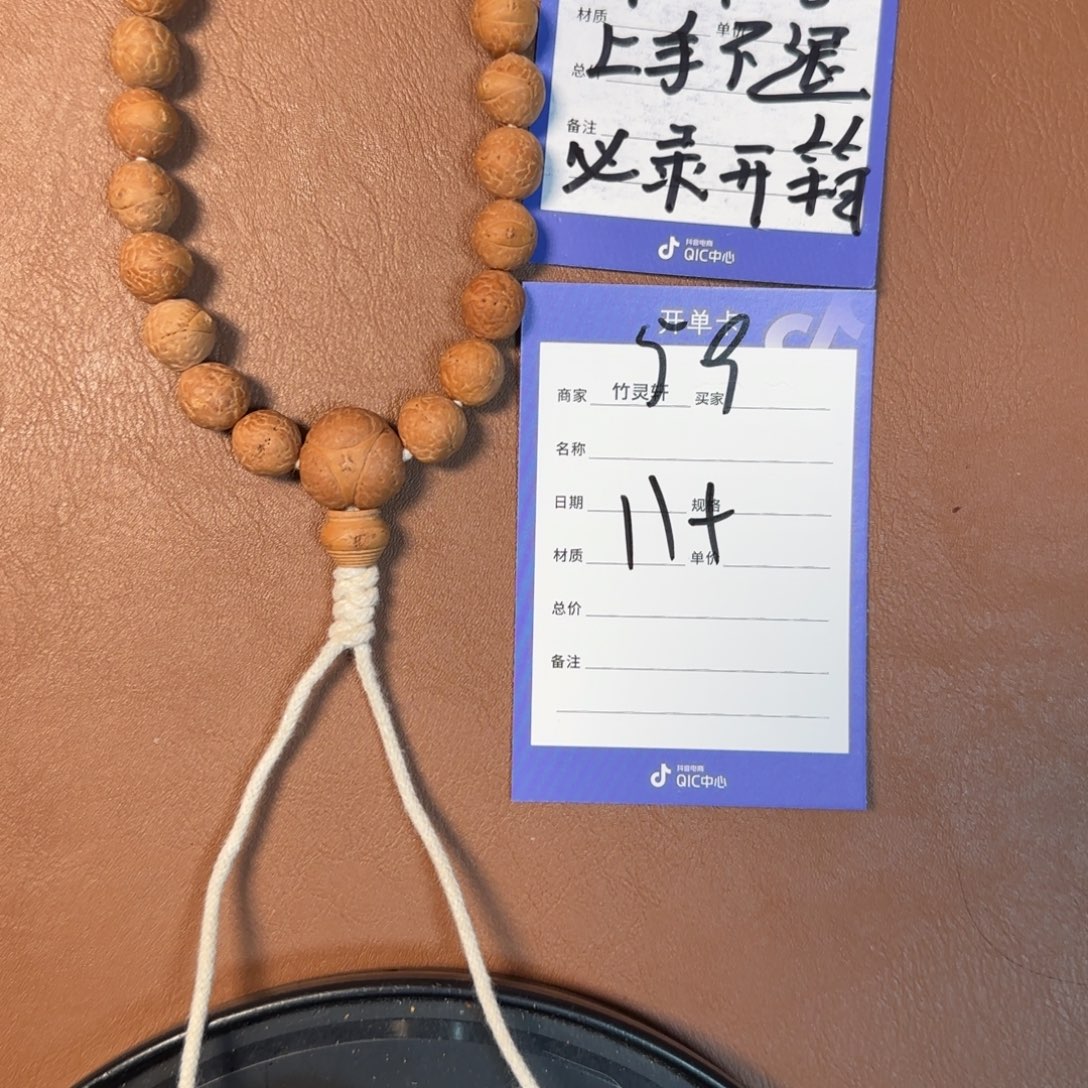 材质 单价
上手不退
总价
备注
必录开箱
抖音电商
QIC中心
开单卡
59
商家 竹灵轩 买家
名称
日期 规格
11+
材质 单价
总价
备注
抖音电商
QIC中心